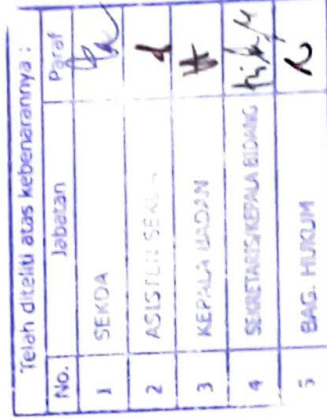 Telah diteliti atas kebenarannya :
No. Jabatan Paraf
1 SEKDA
2 ASISTEN SEKDA
3 KEPALA BADAN
4 SEKRETARIS/KEPALA BIDANG
5 BAG. HUKUM